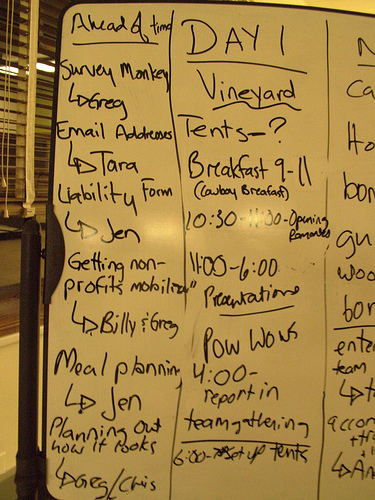 Ahead of time
Survey Monkey
↳Greg
Email Addresses
↳Tara
Liability Form
↳Jen
Getting non-
profits mobilize
↳Billy & Greg
Meal planning
↳Jen
Planning out
how it looks
↳Greg/Chis
DAY 1
Vineyard
Tents-?
Breakfast 9-11
(Cowboy Breafast)
10:30-11:30-Opening
Remarks
11:00-6:00
Presentations
POW WOWS
4:00-
report in
team gathering
6:00-set up tents
N
Ca
Ho
bon
gu
woo
bor
ente
team
accom
+tr
↳An